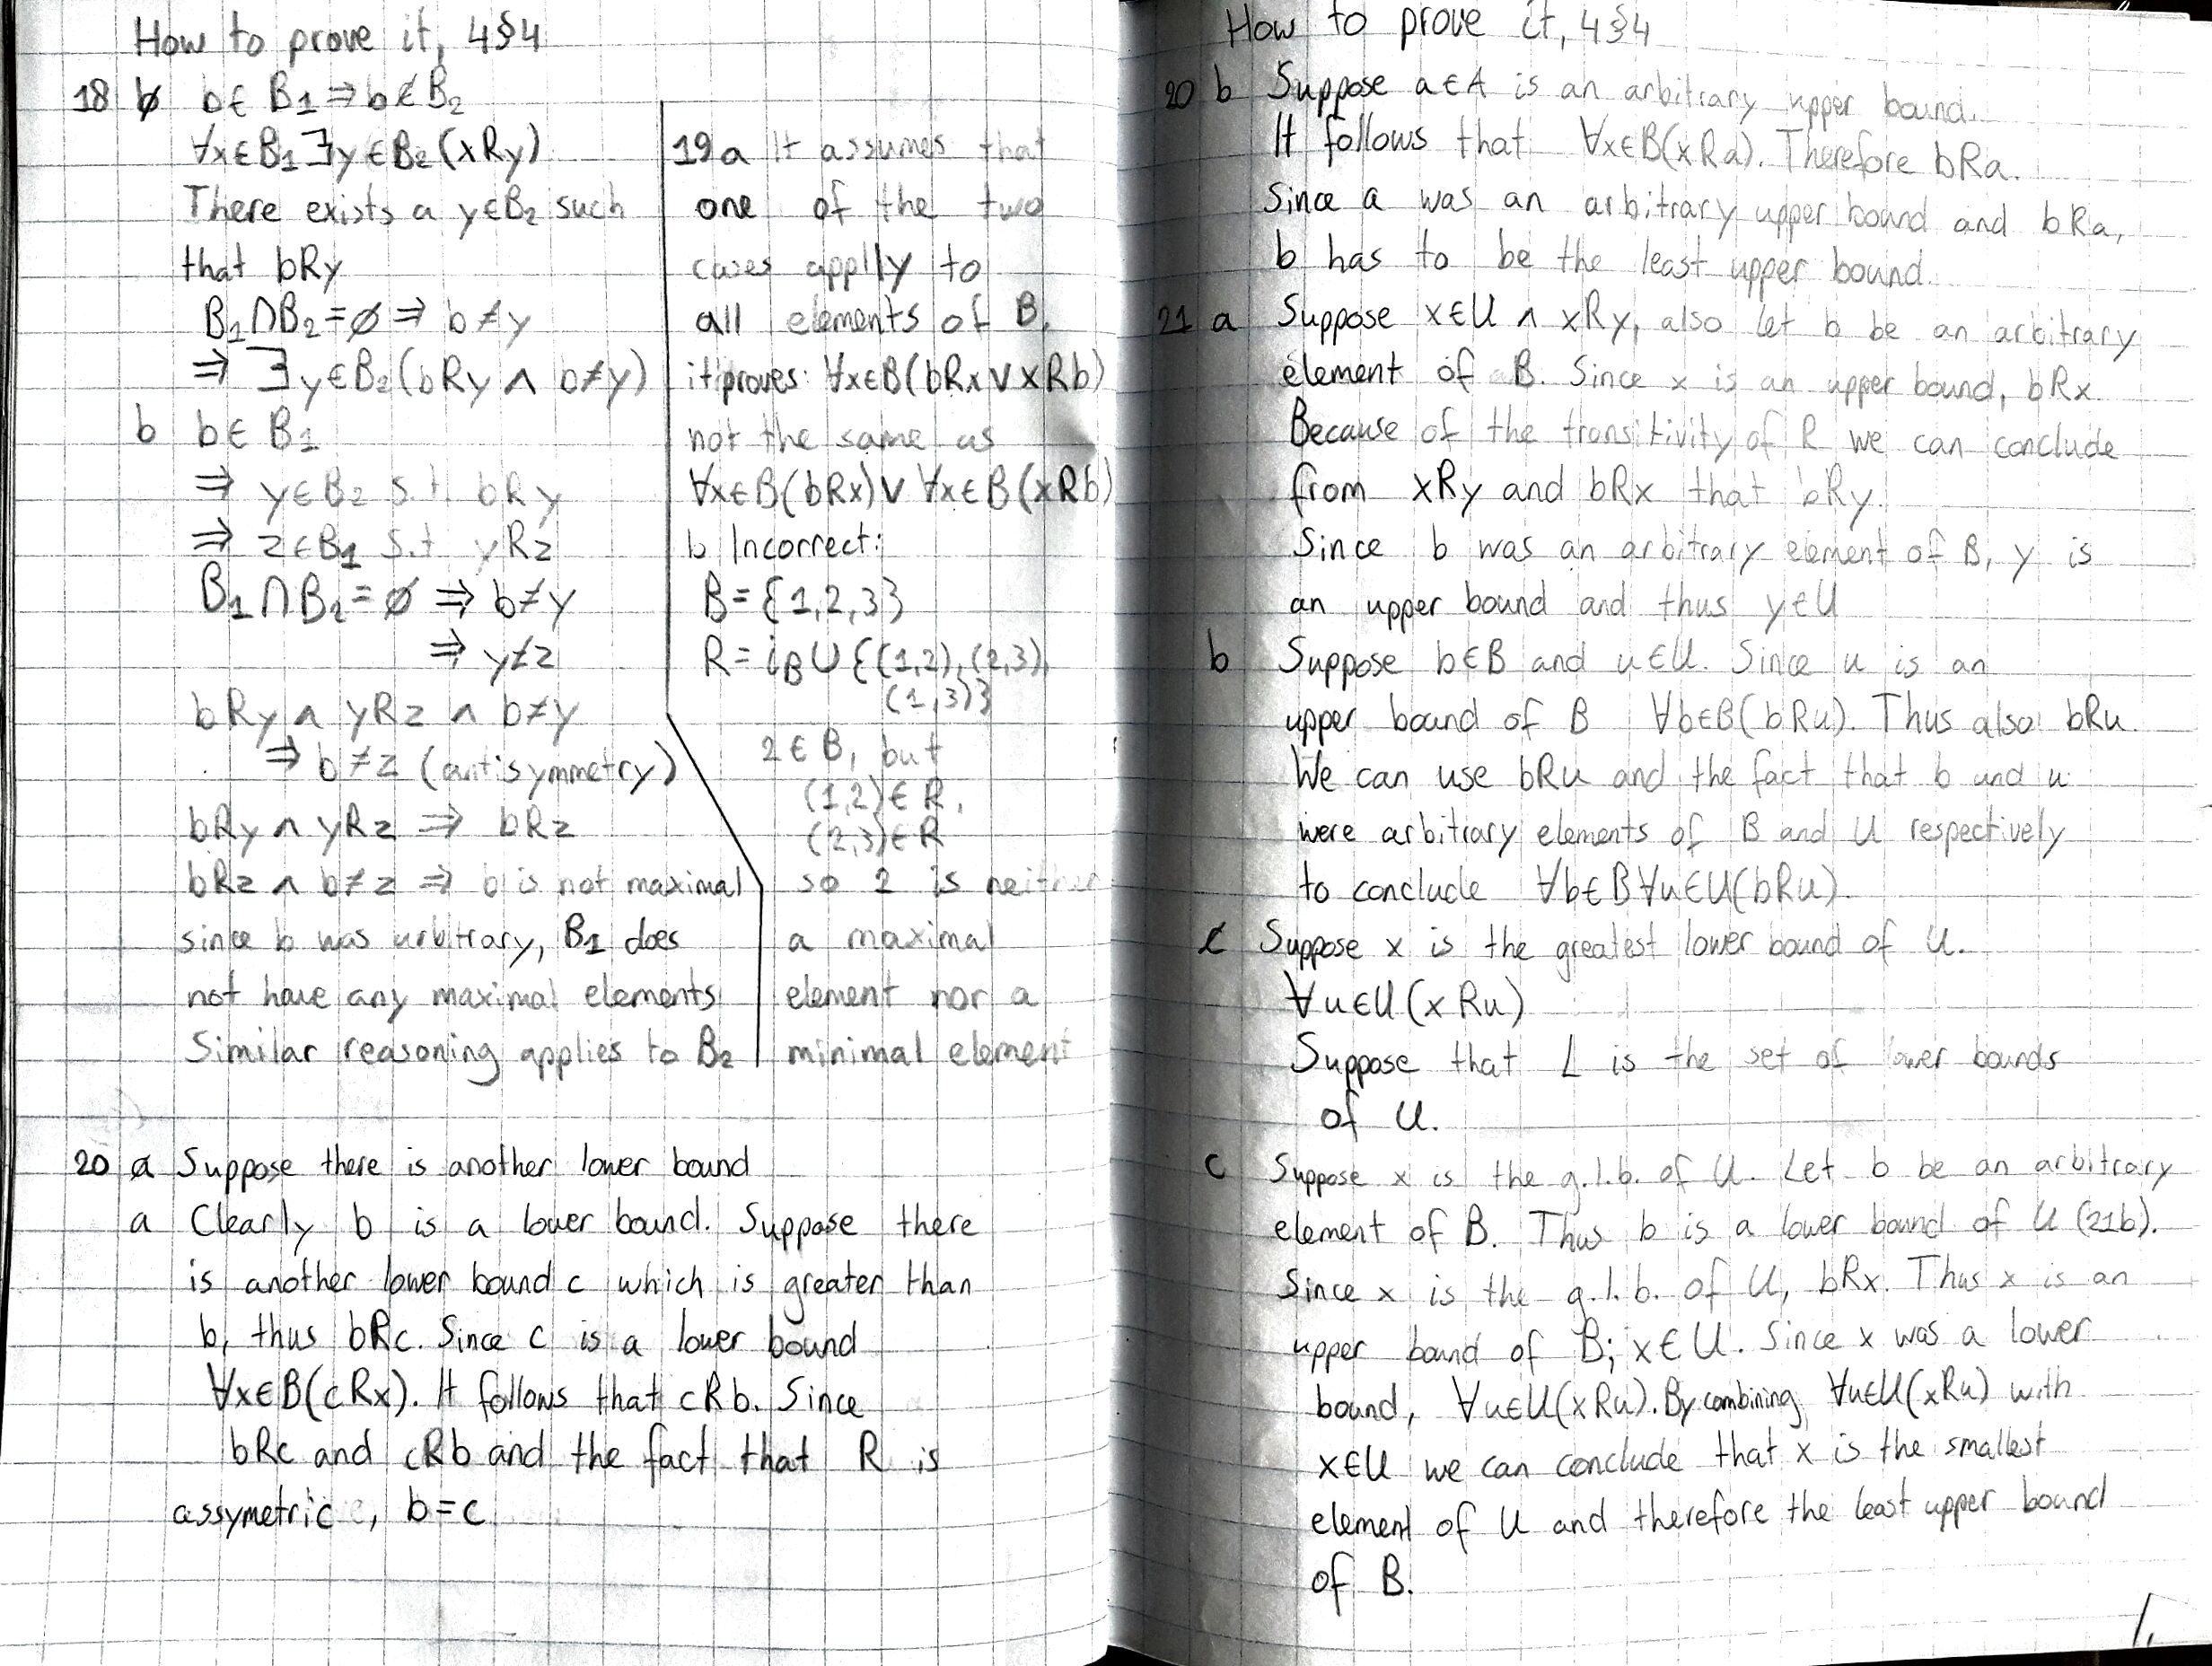 How to prove it, 4§4
18 b b∈ B₁ ⇒ b∉B₂
∀x∈B₁∃y∈B₂(xRy)
There exists a y∈B₂ such
that bRy
B₁∩B₂=∅ ⇒ b≠y
⇒ ∃y∈B₂(bRy ∧ b≠y)
b b∈ B₁
⇒ y∈B₂ s.t. bRy
⇒ z∈B₁ s.t. yRz
B₁∩B₂=∅ ⇒ b≠y
⇒ y≠z
bRy ∧ yRz ∧ b≠y
⇒ b≠z (antisymmetry)
bRy ∧ yRz ⇒ bRz
bRz ∧ b≠z ⇒ b is not maximal
since b was arbitrary, B₁ does
not have any maximal elements
Similar reasoning applies to B₂
19 a It assumes that
one of the two
cases applly to
all elements of B.
it proves: ∀x∈B(bRx∨xRb)
not the same as
∀x∈B(bRx)∨ ∀x∈B(xRb)
b Incorrect:
B={1,2,3}
R=i_B∪{(1,2),(2,3),
(1,3)}
2∈B, but
(1,2)∈R,
(2,3)∈R
so 2 is neither
a maximal
element nor a
minimal element
20 a Suppose there is another lower bound
a Clearly b is a lower bound. Suppose there
is another lower bound c which is greater than
b, thus bRc. Since c is a lower bound
∀x∈B(cRx). It follows that cRb. Since
bRc and cRb and the fact that R is
assymetric, b=c
How to prove it, 4§4
20 b Suppose a∈A is an arbitrary upper bound.
It follows that ∀x∈B(xRa). Therefore bRa.
Since a was an arbitrary upper bound and bRa,
b has to be the least upper bound.
21 a Suppose x∈U ∧ xRy, also let b be an arbitrary
element of B. Since x is an upper bound, bRx.
Because of the transitivity of R we can conclude
from xRy and bRx that bRy.
Since b was an arbitrary element of B, y is
an upper bound and thus y∈U
b Suppose b∈B and u∈U. Since u is an
upper bound of B ∀b∈B(bRu). Thus also bRu.
We can use bRu and the fact that b and u
were arbitrary elements of B and U respectively
to conclude ∀b∈B∀u∈U(bRu).
c Suppose x is the greatest lower bound of U.
∀u∈U(xRu)
Suppose that L is the set of lower bounds
of U.
c Suppose x is the g.l.b. of U. Let b be an arbitrary
element of B. Thus b is a lower bound of U (21b).
Since x is the g.l.b. of U, bRx. Thus x is an
upper bound of B; x∈U. Since x was a lower
bound, ∀u∈U(xRu). By combining ∀u∈U(xRu) with
x∈U we can conclude that x is the smallest
element of U and therefore the least upper bound
of B.